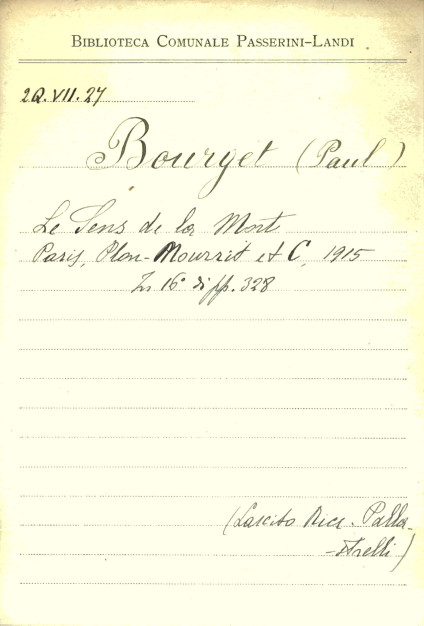 BIBLIOTECA COMUNALE PASSERINI-LANDI
2Q.VII.27
Bourget (Paul)
Le Sens de la Mort
Paris, Plon-Nourrit et C, 1915
In 16° di pp. 328
(Lascito Ricc. Palla-
-strelli)